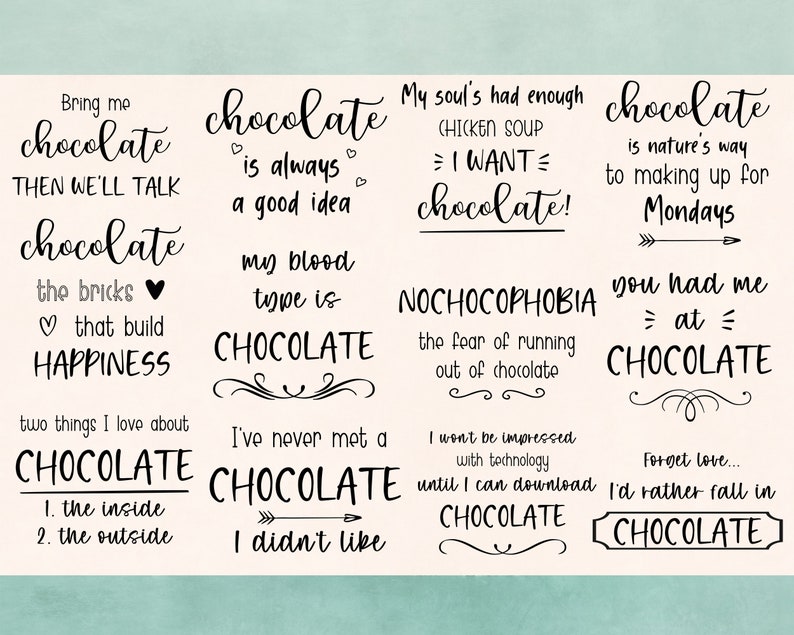 Bring me
chocolate
THEN WE'LL TALK
chocolate
the bricks
that build
HAPPINESS
two things I love about
CHOCOLATE
1. the inside
2. the outside
chocolate
is always
a good idea
my blood
type is
CHOCOLATE
I've never met a
CHOCOLATE
I didn't like
My soul's had enough
CHICKEN SOUP
I WANT
chocolate!
NOCHOCOPHOBIA
the fear of running
out of chocolate
I won't be impressed
with technology
until I can download
CHOCOLATE
chocolate
is nature's way
to making up for
Mondays
you had me
at
CHOCOLATE
Forget love...
I'd rather fall in
CHOCOLATE